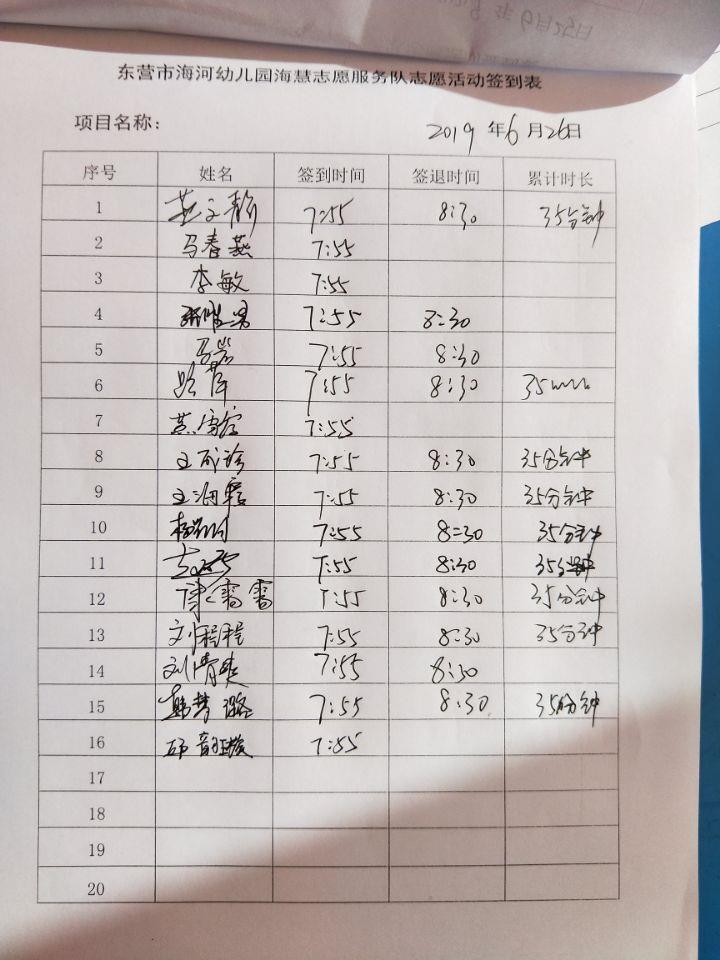 年6月25日
东营市海河幼儿园海慧志愿服务队志愿活动签到表
项目名称： 2019 年6月26日
序号 姓名 签到时间 签退时间 累计时长
1 7:55 8:30 35分钟
2 马春燕 7:55
3 李敏 7:55
4 7:55 8:30
5 马岩 7:55 8:30
6 7:55 8:30 35min
7 7:55
8 王成珍 7:55 8:30 35分钟
9 王海霞 7:55 8:30 35分钟
10 7:55 8:30 35分钟
11 7:55 8:30 35分钟
12 雷雷 7:55 8:30 35分钟
13 刘程程 7:55 8:30 35分钟
14 刘倩爽 7:55 8:30
15 韩梦璐 7:55 8:30 35分钟
16 7:55
17
18
19
20